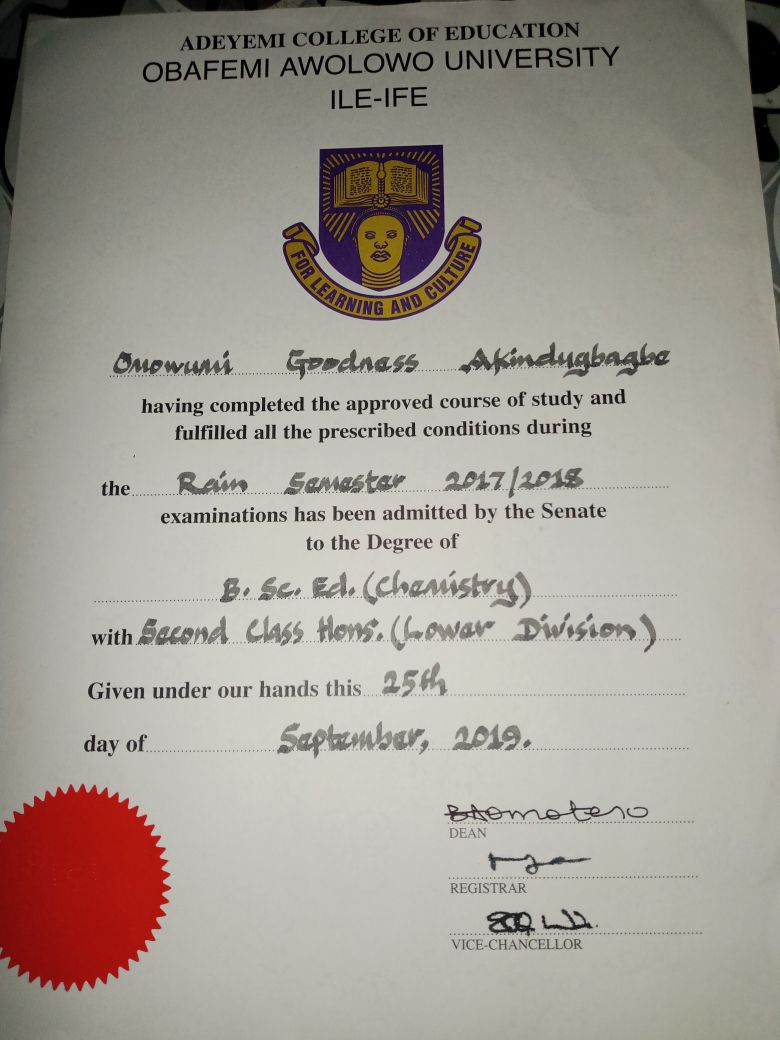 ADEYEMI COLLEGE OF EDUCATION
OBAFEMI AWOLOWO UNIVERSITY
ILE-IFE
FOR LEARNING AND CULTURE
Omowumi Goodness Akindugbagbe
having completed the approved course of study and
fulfilled all the prescribed conditions during
the Rain Semester 2017/2018
examinations has been admitted by the Senate
to the Degree of
B. Sc. Ed. (Chemistry)
with Second Class Hons. (Lower Division)
Given under our hands this 25th
day of September, 2019.
DEAN
REGISTRAR
VICE-CHANCELLOR